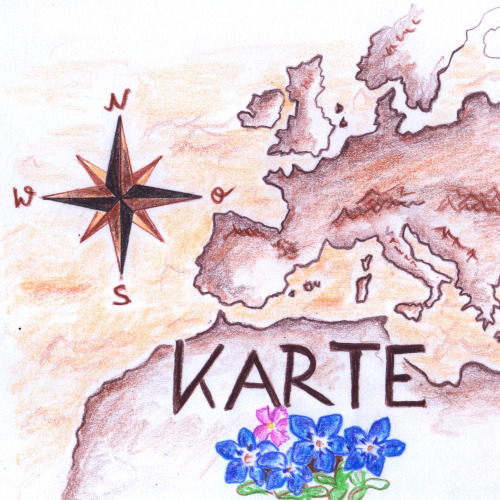 N
W O
S
KARTE